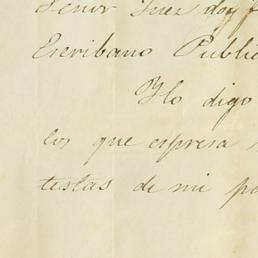 Señor Juez doy f
Escribano Públic
Yo digo
los que espresa
testas de mi p